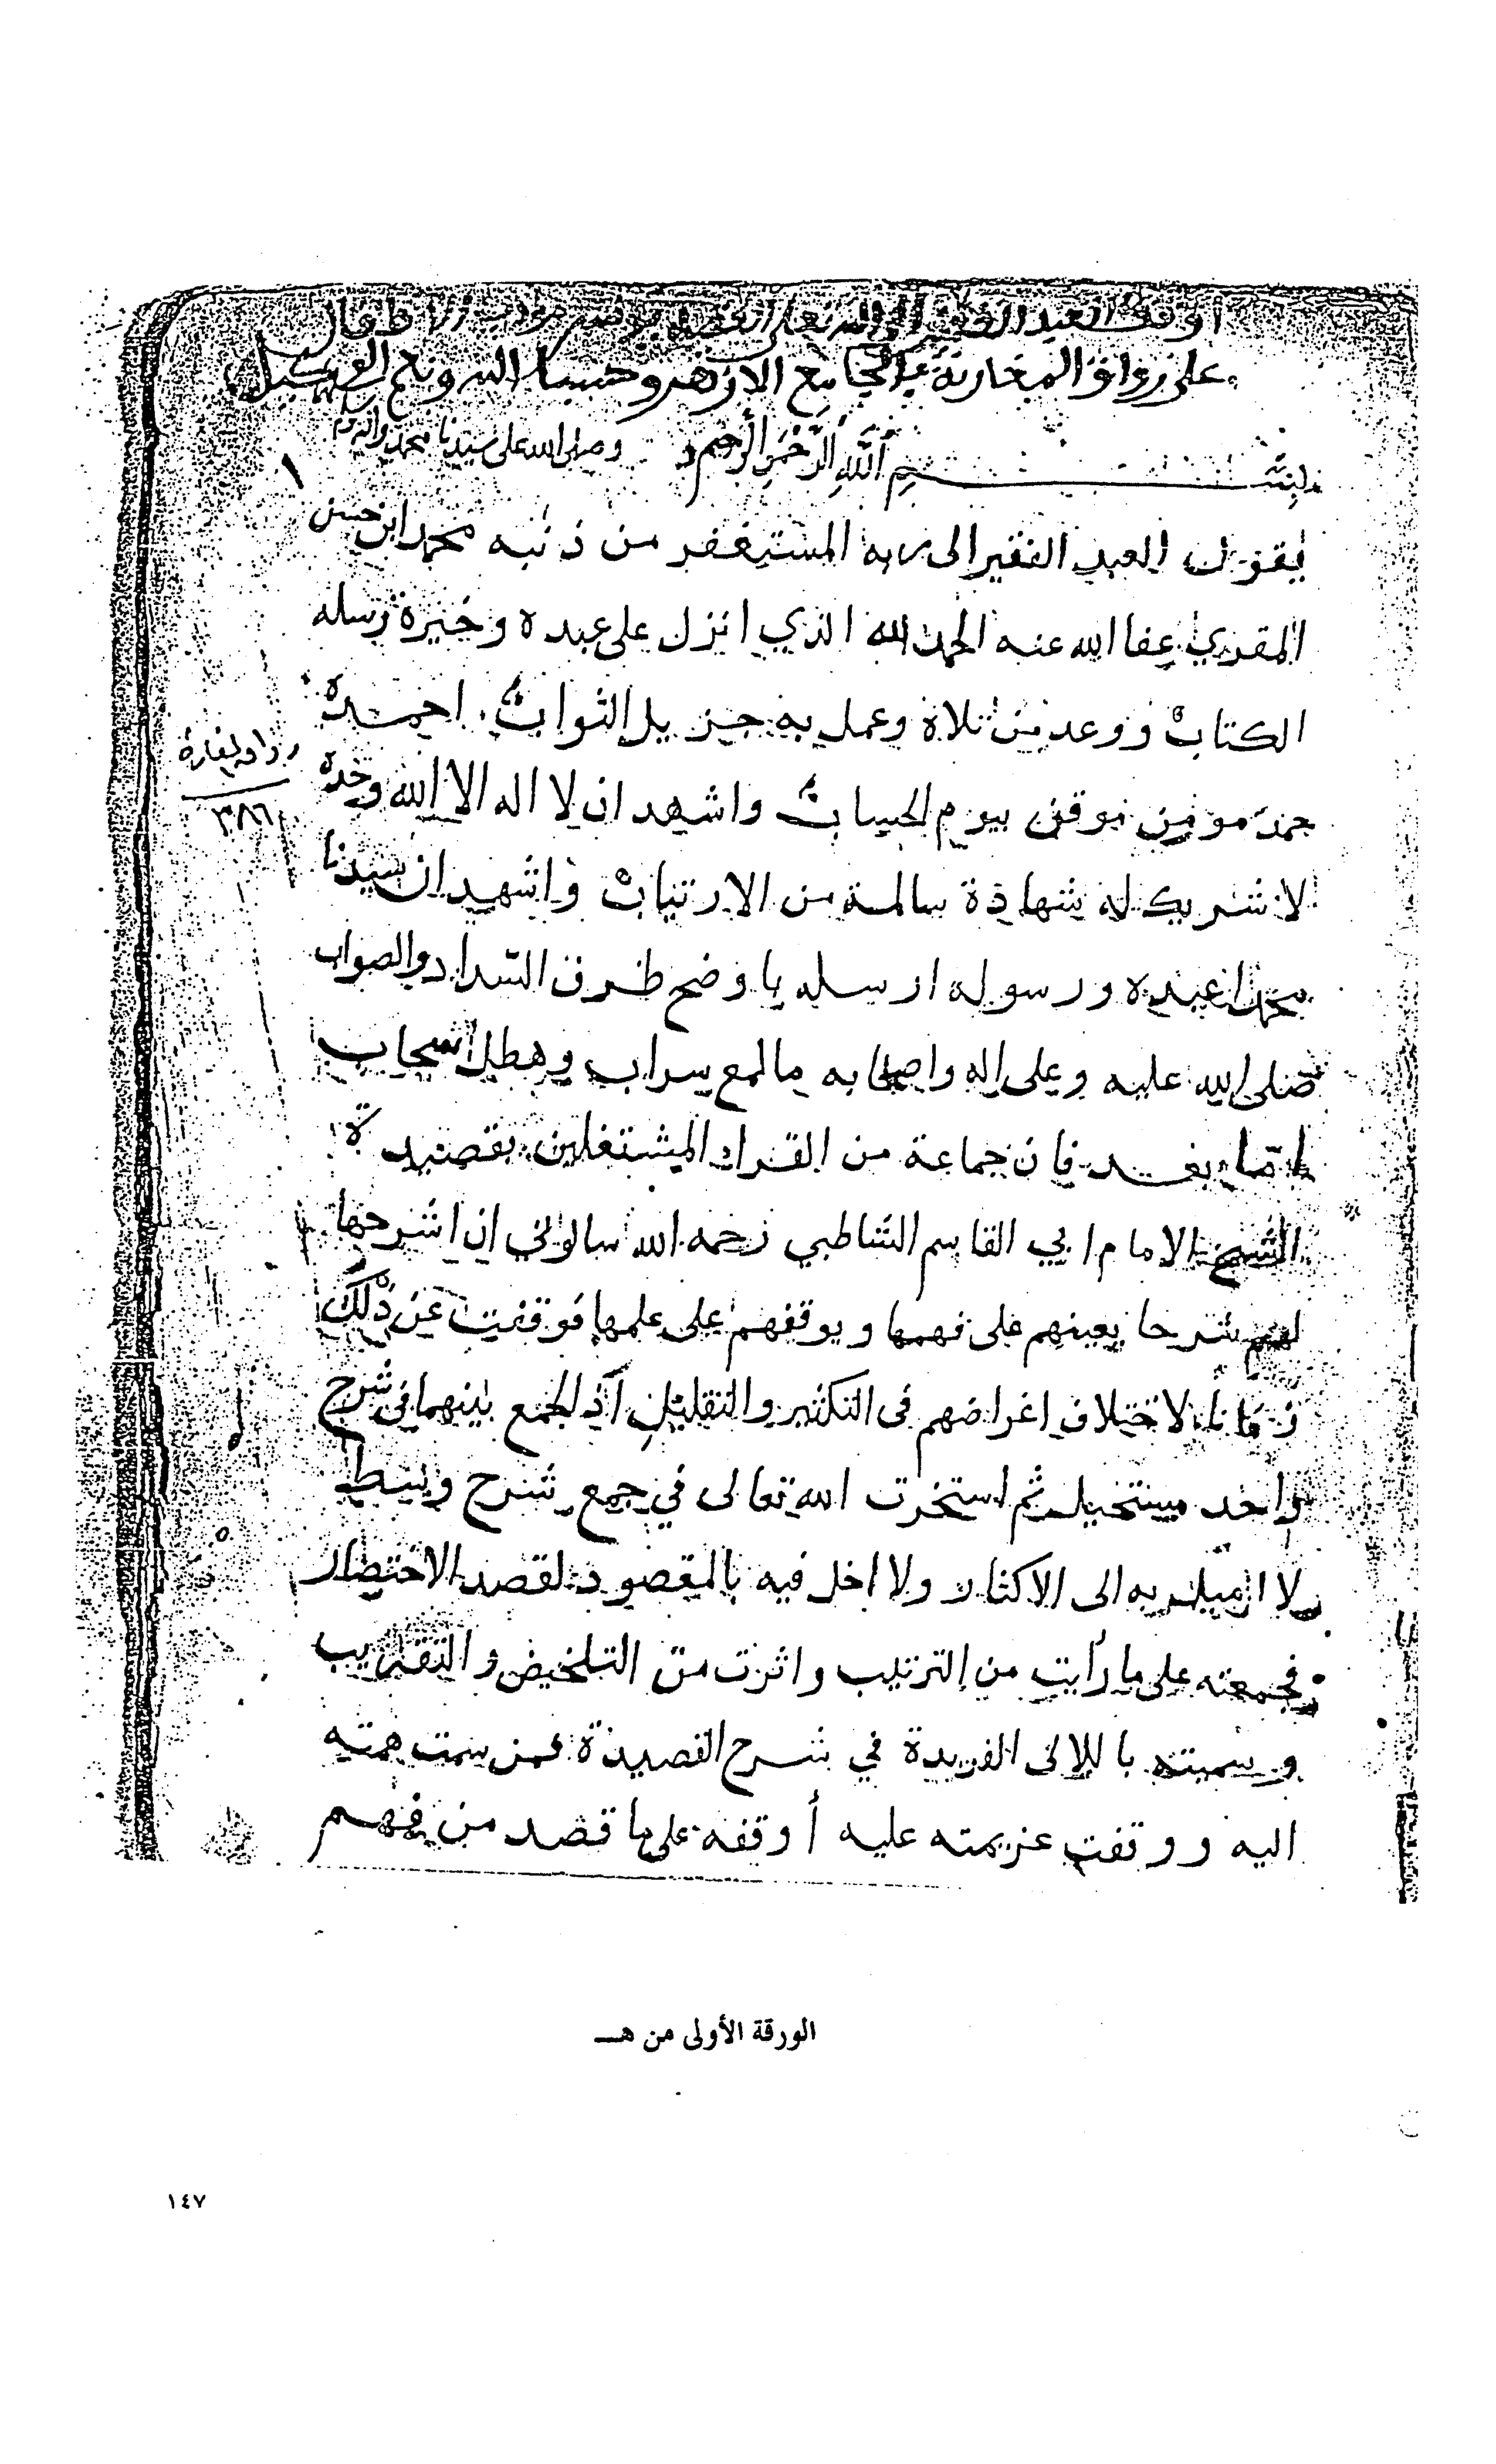 اوقف العبد الفقير الى الله تعالى
على رواق المغاربة بالجامع الازهر وحسبنا الله ونعم الوكيل
بسم الله الرحمن الرحيم وصلى الله على سيدنا محمد واله
١
يقول العبد الفقير الى ربه المستغفر من ذنبه محمد ابن حسن
المقري عفا الله عنه الحمد لله الذي انزل على عبده وخيرة رسله
الكتاب ووعد من تلاه وعمل به جزيل الثواب احمده
حمد مومن موقن بيوم الحساب واشهد ان لا اله الا الله وحده
لا شريك له شهادة سالمة من الارتياب واشهد ان سيدنا
محمدا عبده ورسوله ارسله باوضح طرق السداد والصواب
صلى الله عليه وعلى اله واصحابه ما لمع سراب وهطل سحاب
اما بعد فان جماعة من القراء المشتغلين بقصيدة
الشيخ الامام ابي القاسم الشاطبي رحمه الله سالوني ان اشرحها
لهم شرحا يعينهم على فهمها ويوقفهم على علمها فوقفت عن ذلك
زمانا لاختلاف اغراضهم في التكثير والتقليل اذ الجمع بينهما في شرح
واحد مستحيل ثم استخرت الله تعالى في جمع شرح وسيط
لا اميل به الى الاكثار ولا اخل فيه بالمقصود لقصد الاختصار
فجمعته على ما رأيت من الترتيب واثرت من التلخيص والتقريب
وسميته باللالى الفريدة في شرح القصيدة فمن سمت همته
اليه ووقفت عزيمته عليه أوقفه على ما قصد من فهم
رواق المغاربة
٣٨٦
الورقة الأولى من هـ
١٤٧